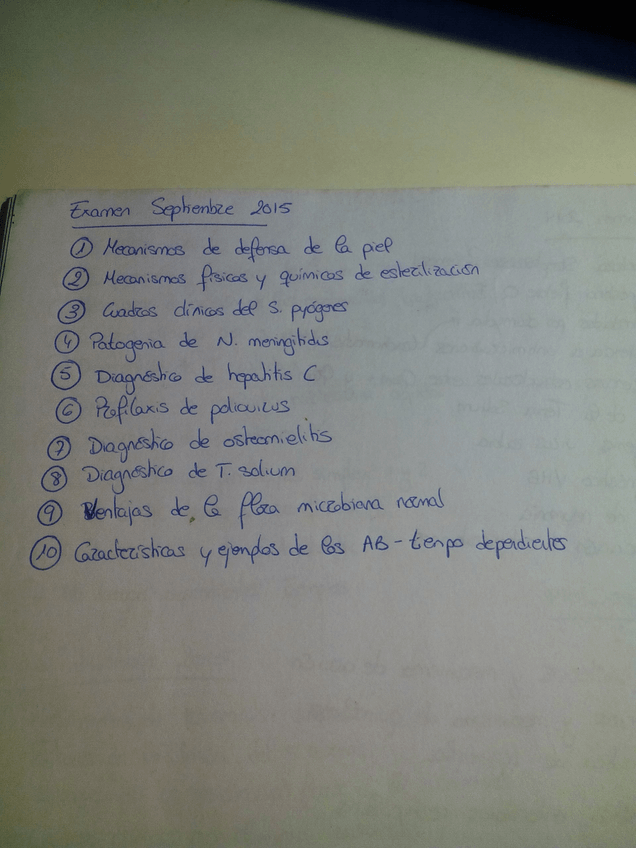 Examen Septiembre 2015
① Mecanismos de defensa de la piel
② Mecanismos físicos y químicos de esterilización
③ Cuadros clínicos del S. pyógenes
④ Patogenia de N. meningitidis
⑤ Diagnóstico de hepatitis C
⑥ Profilaxis de poliovirus
⑦ Diagnóstico de osteomielitis
⑧ Diagnóstico de T. solium
⑨ Ventajas de la flora microbiana normal
⑩ Características y ejemplos de los AB-tiempo dependientes